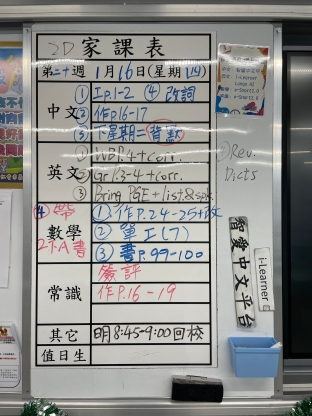 2D 家課表
第二十週 1月16日(星期四)
中文 ① 工p.1-2 ④ 改詞
② 作p.16-17
③ 下星期二(背默)
英文 ① WBP.4+corr. ④ Rev. Dicts
② Gr1.3-4+corr.
③ Bring PGE + list.& spk.
數學 ① 作P.24-25+改
② 單工(7)
③ 書P.99-100
④ 帶2下A書
常識 簽評
作P.16-19
其它 明8:45-9:00回校
值日生
智愛中文平台
i-Learner